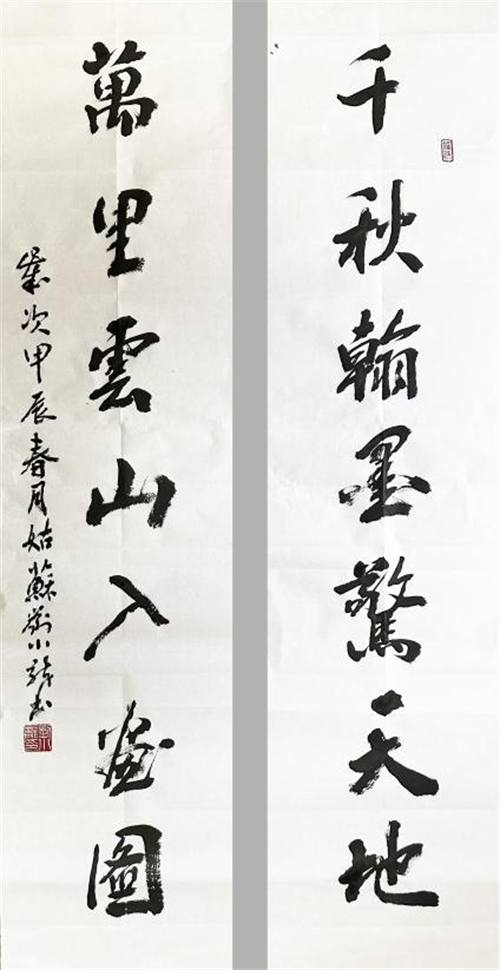 千秋翰墨驚天地
萬里雲山入畫圖
歲次甲辰春月姑蘇劉小龍書